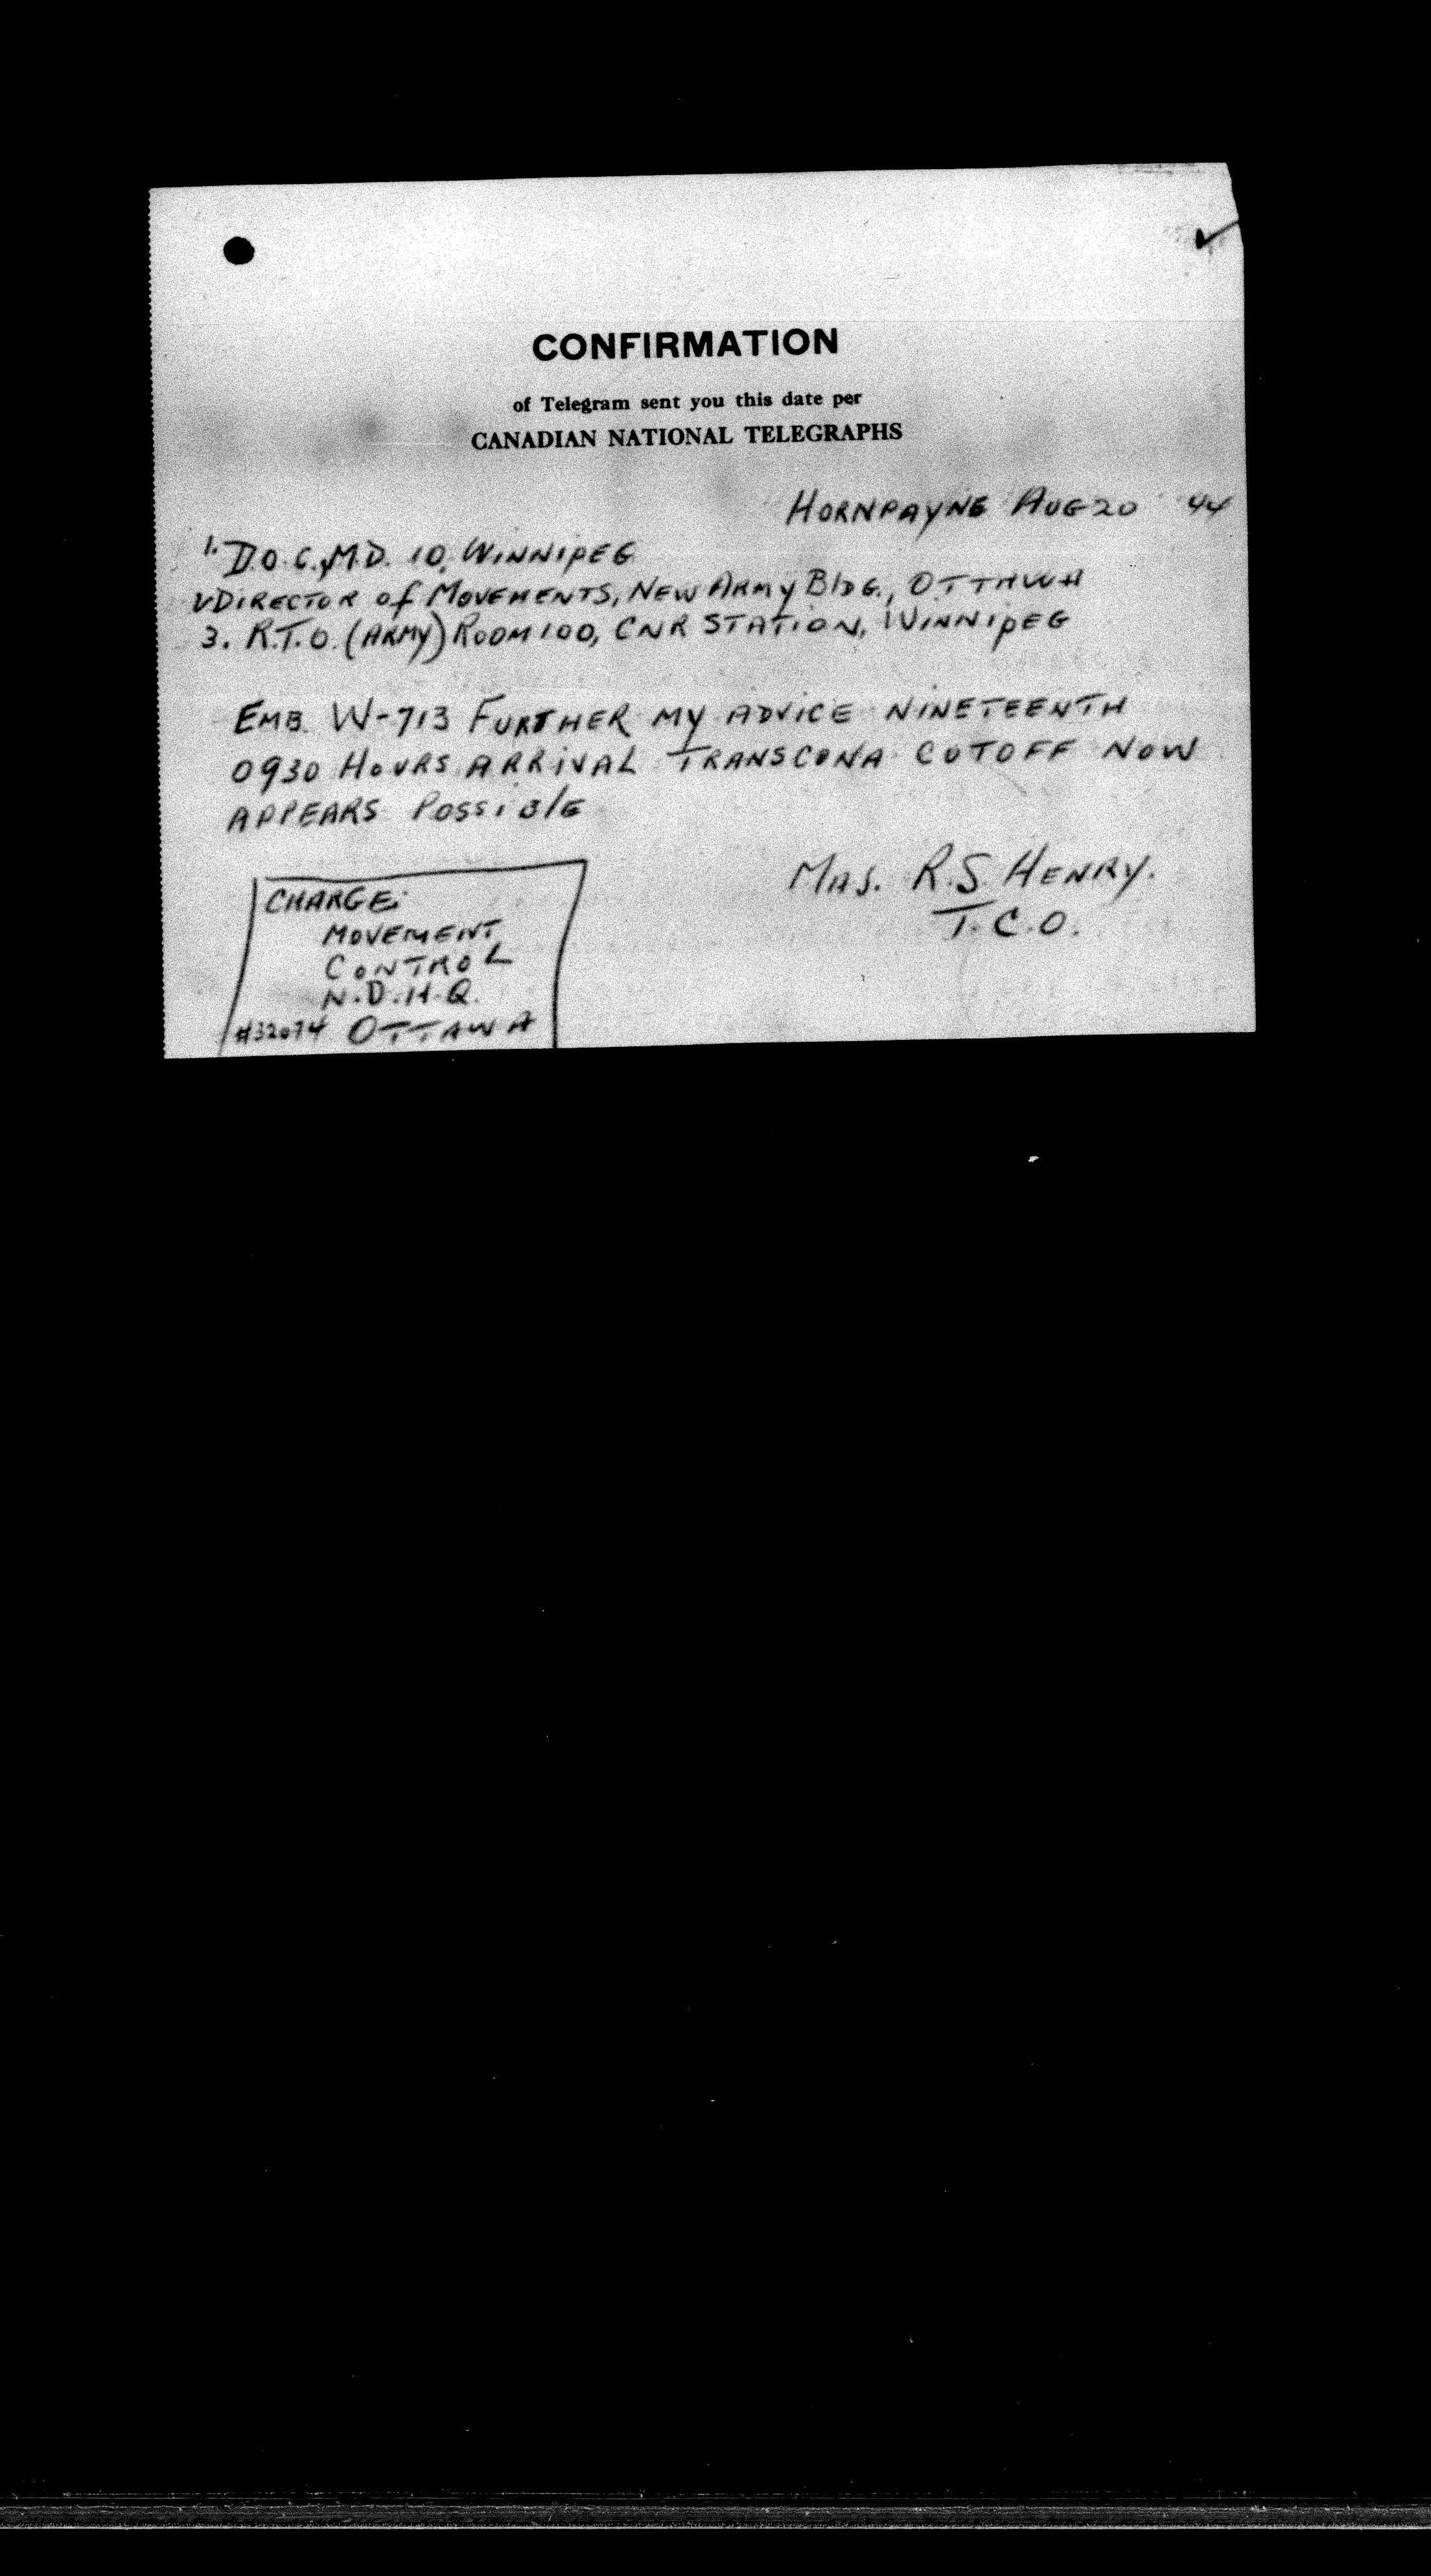 CONFIRMATION
of Telegram sent you this date per
CANADIAN NATIONAL TELEGRAPHS
HORNPAYNE AUG 20 44
1. D.O.C., M.D. 10, WINNIPEG
✓ DIRECTOR of MOVEMENTS, NEW ARMY BLDG., OTTAWA
3. R.T.O. (ARMY) ROOM 100, CNR STATION, WINNIPEG
EMB W-713 FURTHER MY ADVICE NINETEENTH
0930 HOURS ARRIVAL TRANSCONA CUTOFF NOW
APPEARS POSSIBLE
MAJ. R.S. HENRY.
T.C.O.
CHARGE:
MOVEMENT
CONTROL
N.D.H.Q.
#32074 OTTAWA